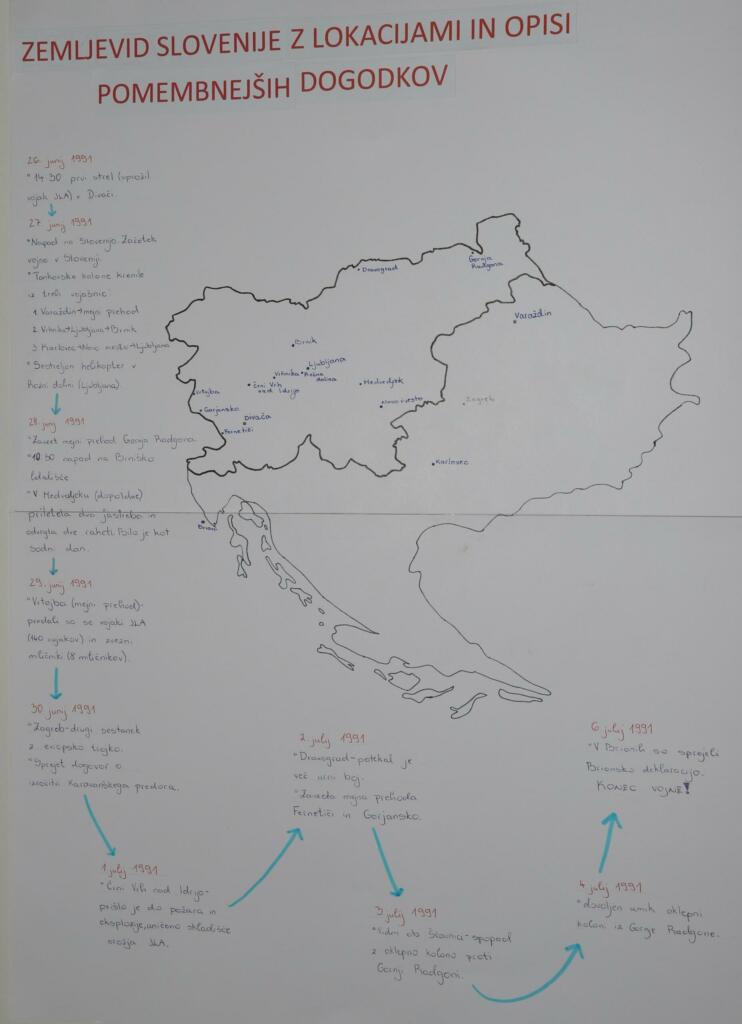 ZEMLJEVID SLOVENIJE Z LOKACIJAMI IN OPISI
POMEMBNEJŠIH DOGODKOV
26. junij 1991
*14.30 prvi strel (sprožil
vojak JLA) v Divači.
27. junij 1991
*Napad na Slovenijo. Začetek
vojne v Sloveniji.
*Tankovske kolone krenile
iz treh vojašnic:
1. Varaždin→mejni prehod
2. Vrhnika→Ljubljana→Brnik
3. Karlovac→Novo mesto→Ljubljana
*Sestreljen helikopter v
Rožni dolini (Ljubljana).
28. junij 1991
*Zavzet mejni prehod Gornja Radgona.
*10.30 napad na Brniško
letališče
*V Medvedjeku (dopoldne)
priletela dva jastreba in
odvrgla dve raketi. Bilo je kot
sodni dan.
29. junij 1991
*Vrtojba (mejni prehod)-
predali so se vojaki JLA
(140 vojakov) in zvezni
miličniki (8 miličnikov).
30 junij 1991
*Zagreb-drugi sestanek
z evropsko trojko.
*Sprejet dogovor o
izročitvi Karavanškega predora.
1 julij 1991
*Črni Vrh nad Idrijo-
prišlo je do požara in
eksplozije, uničeno skladišče
orožja JLA.
2. julij 1991
*Dravograd-potekal je
več urni boj.
*Zavzeta mejna prehoda
Fernetiči in Gorjansko.
3 julij 1991
*Vidm ob Ščavnici-spopad
z oklepno kolono proti
Gornji Radgoni.
4 julij 1991
*dovoljen umik oklepni
koloni iz Gornje Radgone.
6 julij 1991
*V Brionih so sprejeli
Brionsko deklaracijo.
KONEC VOJNE!
Gornja
Radgona
Dravograd
Varaždin
Brnik
Ljubljana
Vrhnika
Rožna
dolina
Črni Vrh
nad Idrijo
Medvedjek
Vrtojba
Novo mesto
Zagreb
Gorjansko
Divača
Fernetiči
Karlovac
Brioni